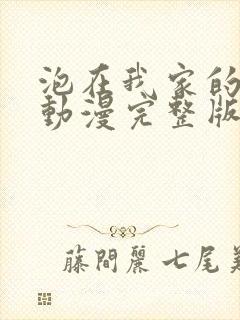 泡在我家的
動漫完整版
藤間麗 七尾美